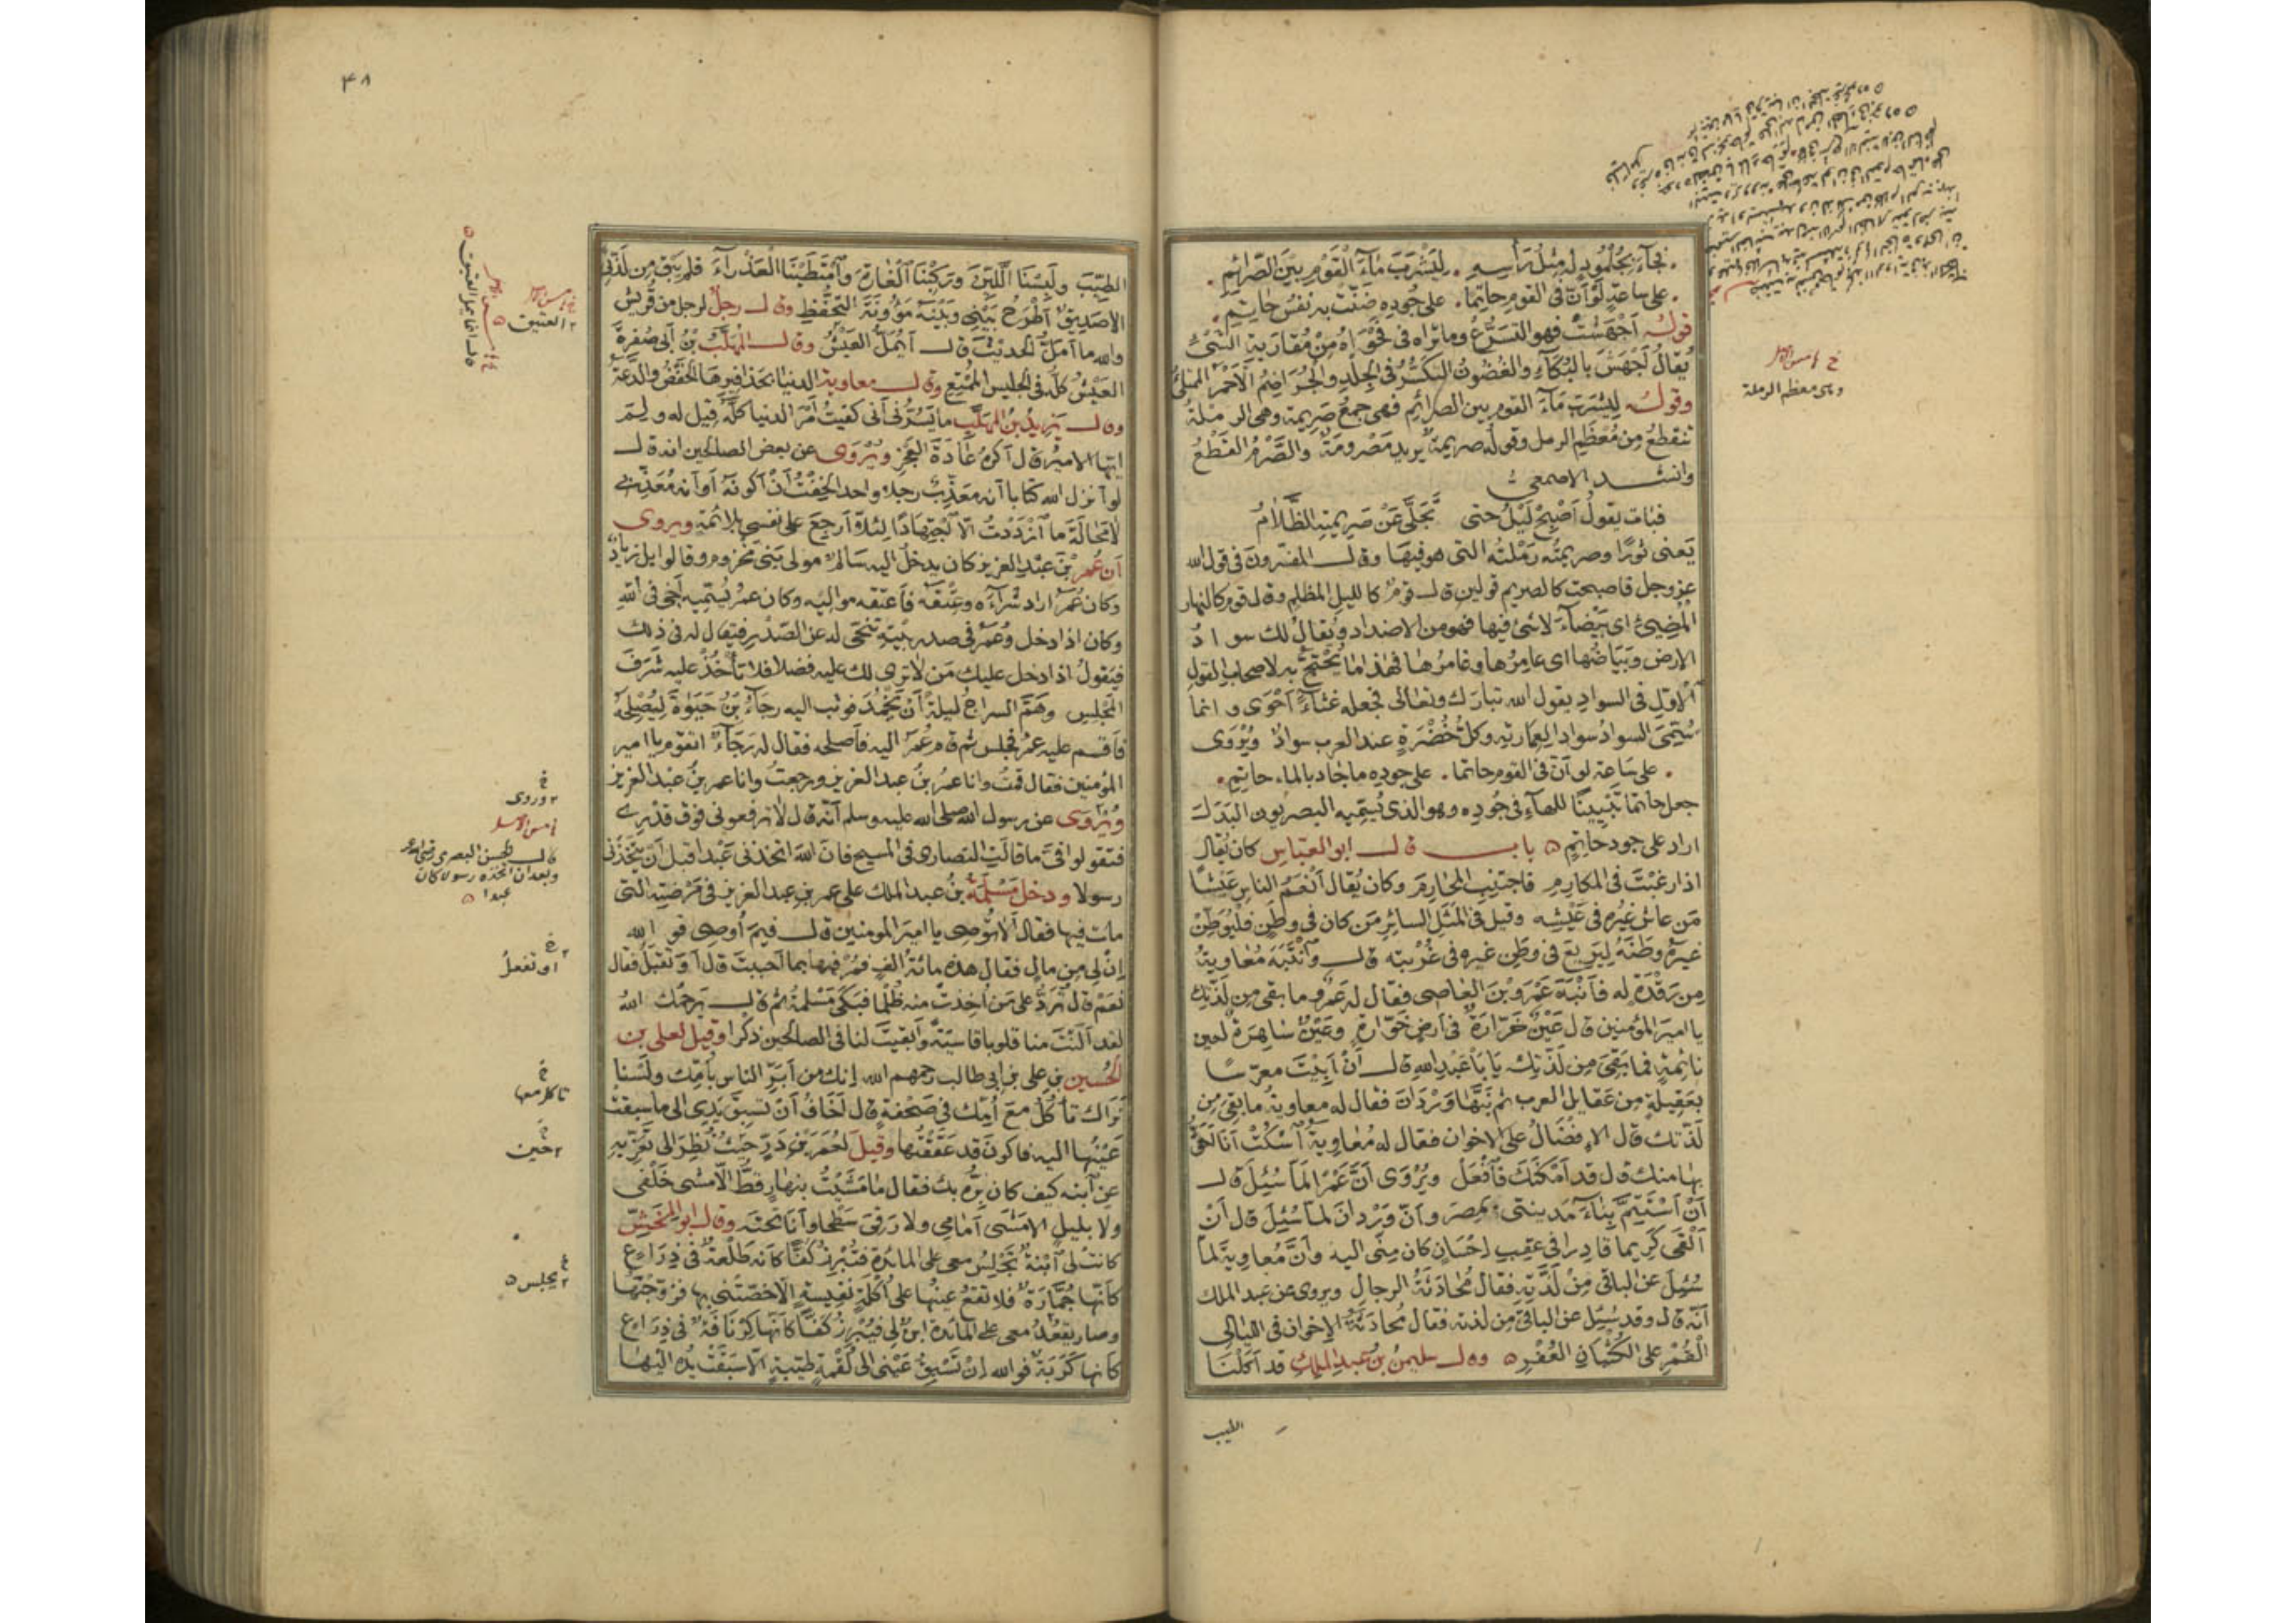 فجآءَ بجُلْمُودٍ له مثلُ رَأسِهِ . ليَشْرَبَ مَاءَ الْقَوْمِ بيْنَ الصَّرَائِمِ .
. على ساعةٍ لَوْ اَنّ فى القومِ حاتِمًا . على جُودِهِ ضَنَّتْ به نفسُ حاتِمِ .
قولُه اَجْهَشَتْ فهو التسَرُّعُ وما تراه فى فَحْوَاهُ مِنْ مُقَارَبةِ الشَّىْءِ
يُقالُ اَجْهَشَ بالبُكَآءِ والغُضُونُ التكَسُّرُ فى الجِلْدِ والجُرَاضِمُ الاَحْمَرُ الممتلِئُ
وقولُه ليَشْرَبَ مَآءَ القومِ بين الصرائِمِ فهى جمعُ صَرِيمةٍ وهى الرملةُ
تنقطِعُ مِن مُعْظَمِ الرمل وقولُه صريمةٌ يريد مَصْرُومَةٌ والصَّرْمُ القَطْعُ
وانشد الاصمعىُّ
فباتَ يقولُ اَصْبِحْ لَيْلُ حتى تَجَلَّى عَنْ صَرِيمتِهِ الظَّلَامُ
يَعنى ثَوْرًا وصريمتُه رَمْلتُه التى هو فيهَا وقال المفسّرونَ فى قول الله
عز وجل فاصبحت كالصريم قولين قال قومٌ كالليلِ المظلمِ وقال قوم كالنهار
المُضِىْءِ اى بَيْضَآءَ لا شىْءَ فيها فهو من الاضداد ويُقالُ لك سوادُ
الارض وبَيَاضُها اى عامِرُها وغامرُها فهذا ما يُحْتَجُّ به لاصحاب القول
الاَوّلِ فى السوادِ يقول الله تبارك وتعالى فجعله غُثآءً اَحْوَى وانما
سُمِّىَ السوادُ سوادا لعِمارتِهِ وكلُّ خُضْرَةٍ عند العرب سوادٌ ويُرْوَى
. على ساعة لو اَنّ فى القوم حاتما . على جوده ما جاد بالماء حاتم .
جعل حاتما تَبْيِينًا للهآءِ فى جُودِه وهو الذى يُسَمِّيه البصريون البَدَلَ
اراد على جودِ حاتمٍ ه باب قال ابو العبّاسِ كان يُقال
اذا رغبْتَ فى المكارِمِ فاجتنِبِ المحارِمَ وكان يُقال اَنْعَمُ الناسِ عَيْشًا
مَن عاش غيْرُه فى عَيْشِه وقيل فى المَثَلِ السائِرِ مَن كان فى وطَنٍ فلْيُوَطِّنْ
غيرَهُ وطَنَهُ ليَرْبَعَ فى وطَنِ غيره فى غُرْبتِه قال وانْتَبَهَ مُعاويةُ
مِن رَقْدَةٍ له فاَنْبَهَ عَمْرَو بْنَ العاصى فقال له عَمْرٌو ما بقى مِن لَذّتِك
يا اميرَ المؤمنين قال عَيْنٌ خَرَّارَةٌ فى اَرضٍ خَوّارةٍ وعَيْنٌ سَاهِرَةٌ لعينٍ
نائِمةٍ فما بَقِىَ مِن لَذّتِك يا بَا عَبْدِ اللهِ قال اَنْ اَبِيْتَ معرّسًا
بعَقِيلةٍ من عَقايِل العرب ثم نَبَّها وَرْدَانَ فقال له معاوية ما بقِىَ مِن
لَذّتك قال الاِفْضَالُ على الاِخوان فقال له مُعاويةُ اُسْكُتْ اَنا اَحَقُّ
بها منك قال قد اَمْكَنَكَ فافْعَلْ ويُرْوَى اَنَّ عَمْرًا لمّا سُئِلَ قال
اَنْ اَسْتَتِمَّ بِنَاءَ مَدينتى بمِصرَ واَنّ وَرْدانَ لمّا سُئِلَ قال اَنْ
اَلْقَى كَرِيما قادِرا فى عَقِبِ اِحْسَانٍ كان مِنّى اليه وَاَنَّ مُعاويةَ لمّا
سُئِلَ عن الباقى مِنْ لَذَّتِهِ فقال مُحَادَثَةُ الرجالِ ويروى عن عبد الملك
اَنّه قال وقد سُئِلَ عن الباقى مِن لذته فقال مُحادَثَةُ الاِخوان فى الليالى
القُمْرِ على الكُثْبَانِ العُفْرِ ه وقال سليمنُ بنُ عبدِ الملِكِ قد اَكَلْنَا
الطيب
خ
وهى معظم الرملة
٤٨
الطيِّبَ ولَبِسْنَا اللَّيِّنَ ورَكِبْنَا الْفَارِهَ وامْتَطَيْنَا العَذْرَآءَ فلم يَبْقَ مِن لَذّتى
الا صَدِيقٌ اَطْرَحُ بَيْنى وبَيْنَه مَؤونَةَ التَّحَفُّظِ وقال رجلٌ لرجل من قُريشٍ
والله ما اَمَلُّ الحديثَ قال اَيُمَلُّ العَيشُ وقال المُهَلَّبُ بنُ اَبى صُفرةَ
العَيْشُ كلّه فى الجليسِ الممُتِعِ وقال معاوية الدنيا بحَذافِيرِهَا الخَفْضُ والدعَةُ
وقال يَزِيدُ بنُ المُهَلَّبِ ما يَسُرُّنى اَنى كُفِيتُ اَمْرَ الدنيا كلَّهُ قيل له ولِمَ
ايّها الاميرُ قال اَكرهُ عَادَةَ العَجْزِ ويُرْوَى عن بعض الصالحين انه قال
لو اَنزل الله كتابا اَنه معَذِّبٌ رجلا واحدا لخِفْتُ اَنْ اَكونَهُ اَو اَنه مُعَذِّبى
لامَحَالَةَ ما ازْدَدْتُ الّا اجْتِهَادًا لِئلّا اَرجعَ على نفسى بلائِمةٍ ويروى
اَن عُمَرَ بْنَ عَبْدِ العزيز كان يدخلُ اليه سَالِمٌ مولى بَنى مَخْزومٍ وقالوا بل زيادٌ
وكان عُمَرُ اراد شِرآءَه وعِتْقَهُ فاَعتقه مواليْهِ وكان عمرُ يُسَمِّيه اَخى فى اللهِ
وكان اذا دخل وعُمَرُ فى صدرِ بَيْتِهِ تنَحّى له عن الصَّدْرِ فيُقال له فى ذلك
فيَقولُ اذا دخل عليك مَن لا تَرى لك عليه فضلا فلا تاْخُذْ عليه شَرَفَ
المَجْلِسِ وهَمَّ السراجُ ليلةً اَنْ يَخْمُدَ فوثب اليه رجآءُ بْنُ حَيْوَةَ ليُصْلِحَهُ
فاَقسم عليه عمرُ فجلس ثم قام عُمَرُ اليه فاَصلحه فقال له رَجَآءٌ اتقوم يا امير
المؤمنين فقال قمتُ وانا عُمَرُ بنُ عبد العزيز ورجعتُ وانا عمر بنُ عبد العزيز
ويُرْوَى عن رسول الله صلى الله عليه وسلم اَنّه قال لا ترفعونى فوق قَدْرِى
فتقولوا فِىَّ ما قالَتِ النصارى فى المسيح فانّ اللهَ اتخذنى عَبْدا قبل اَنْ يَتّخِذَنى
رسولا ودخل مَسْلَمَةُ بنُ عبد الملك على عمر بنِ عبد العزيز فى مَرْضَتِه التى
مات فيها فقال اَلا تُوْصِى يا اميرَ المومنين قال فيمَ اُوصِى فوالله
اِنْ لى مِن مالٍ فقال هذه مائة الفٍ فمُرْ فيها بما اَحببتَ قال اَوَ تَقبَلُ فقال
نَعَمْ قال تُرَدُّ على مَن اُخِذتْ منه ظُلمًا فبَكَى مَسْلمةُ ثم قال يَرحَمُكَ اللهُ
لقد اَلَنْتَ منا قلوبا قاسيَةً واَبقيْتَ لنا فى الصالحين ذكرا وقيل لعلى بن
الحُسين بن على بن ابى طالب رحمهم الله اِنك من اَبَرِّ الناس بأمِّك ولَسْنا
نَراك تاْكُلُ معَ اُمِّك فى صَحْفةٍ قال اَخَافُ اَنْ تسبِقَ يَدِى الى ما سبقتْ
عَيْنُها اليه فاكونَ قد عَقَقْتُها وقيلَ لعُمَرَ بن ذَرٍّ حَيثُ نُظِرَ الى تَعَزِّيهِ
عن ابنِه كيف كان بِرُّه بك فقال ما مَشَيْتُ بنهارٍ قطُّ الّا مشى خَلْفى
ولا بليلٍ الا مَشَى اَمَامِى ولا رَقِىَ سَطْحا واَنَا تحتَه وقال ابو المِخَشِّ
كانتْ لى ابنةٌ تَجْلِسُ معى على المائدةِ فتُبْرِزُ كَفًّا كاَنه طَلْعَةٌ فى ذِرَاعٍ
كاَنّها جُمَّارَةٌ فلا تقعُ عينُها على اُكْلَةٍ نفِيسةٍ الّا خصّتْنى بها فزوّجْتُها
وصار يقعُدُ معى على المائدة ابنٌ لى فيُبْرِزُ كَفًّا كاَنّها كِرْنَافَةٌ فى ذِرَاعٍ
كاَنها كَرَبَةٌ فوالله اِنْ تَسْبِقُ عَيْنى الى لُقْمةٍ طيّبةٍ الّا سبَقَتْ يدُه اليْها
العتيق
خ
وروى
قال الحسن البصرى
وبعد ان اتخذه رسولا كان
عبدا ه
او تفعلُ
تاكل معها
حين
يجلس ه